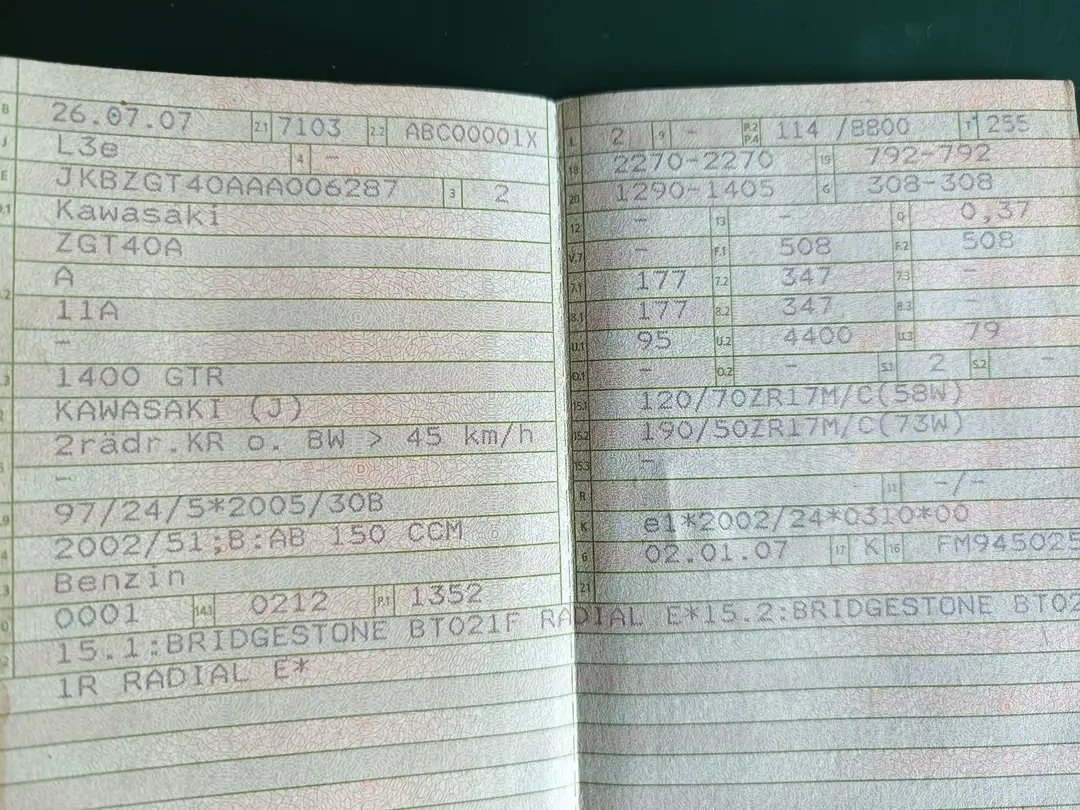 B 26.07.07 2.1 7103 2.2 ABC00001X
J L3e 4 -
E JKBZGT40AAA006287 3 2
Kawasaki
ZGT40A
A
11A
-
1400 GTR
KAWASAKI (J)
2rädr.KR o. BW > 45 km/h
-
97/24/5*2005/30B
2002/51;B:AB 150 CCM
Benzin
0001 14.1 0212 P.1 1352
L 2 9 - P.2 P.4 114 /8800 T 255
18 2270-2270 19 792-792
20 1290-1405 G 308-308
12 - 13 - Q 0,37
V.7 - F.1 508 F.2 508
7.1 177 7.2 347 7.3 -
8.1 177 8.2 347 8.3 -
U.1 95 U.2 4400 U.3 79
O.1 - O.2 - S.1 2 S.2 -
15.1 120/70ZR17M/C(58W)
15.2 190/50ZR17M/C(73W)
15.3 -
R 11 -/-
K e1*2002/24*0310*00
6 02.01.07 17 K 16 FM945025
21
15.1:BRIDGESTONE BT021F RADIAL E*15.2:BRIDGESTONE BT02
1R RADIAL E*